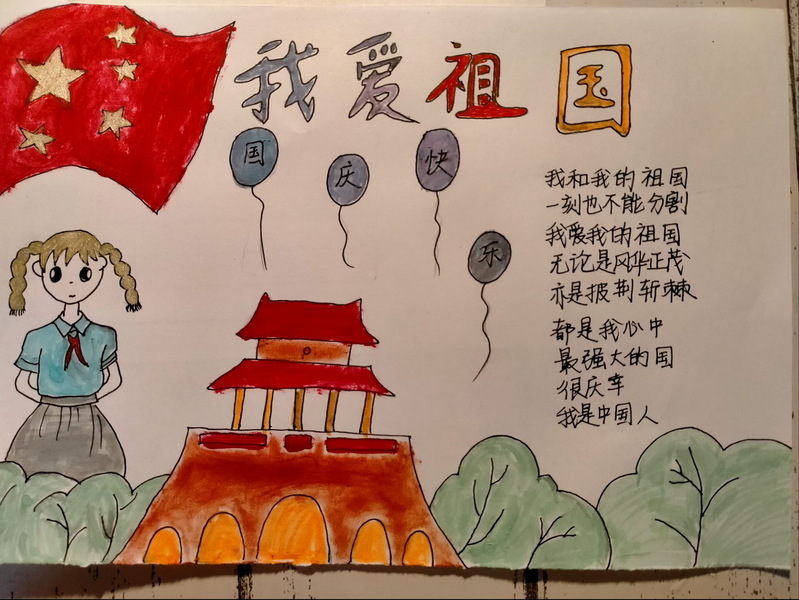 我爱祖国
国庆快乐
我和我的祖国
一刻也不能分割
我爱我的祖国
无论是风华正茂
亦是披荆斩棘
都是我心中
最强大的国
很庆幸
我是中国人